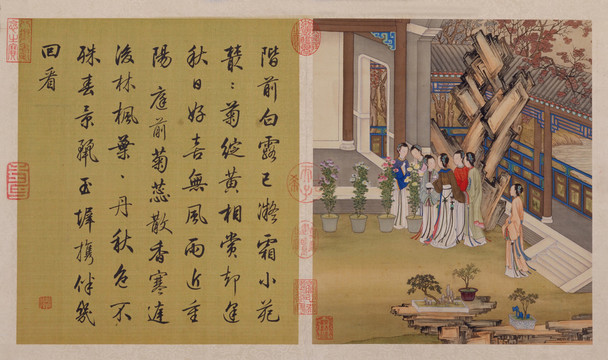 階前白露已凝霜小苑
叢〻菊綻黃相賞却逢
秋日好喜無風雨近重
陽庭前菊蕊散香寒
後林楓葉〻丹秋色不
殊春景麗玉墀攜伴幾
回看